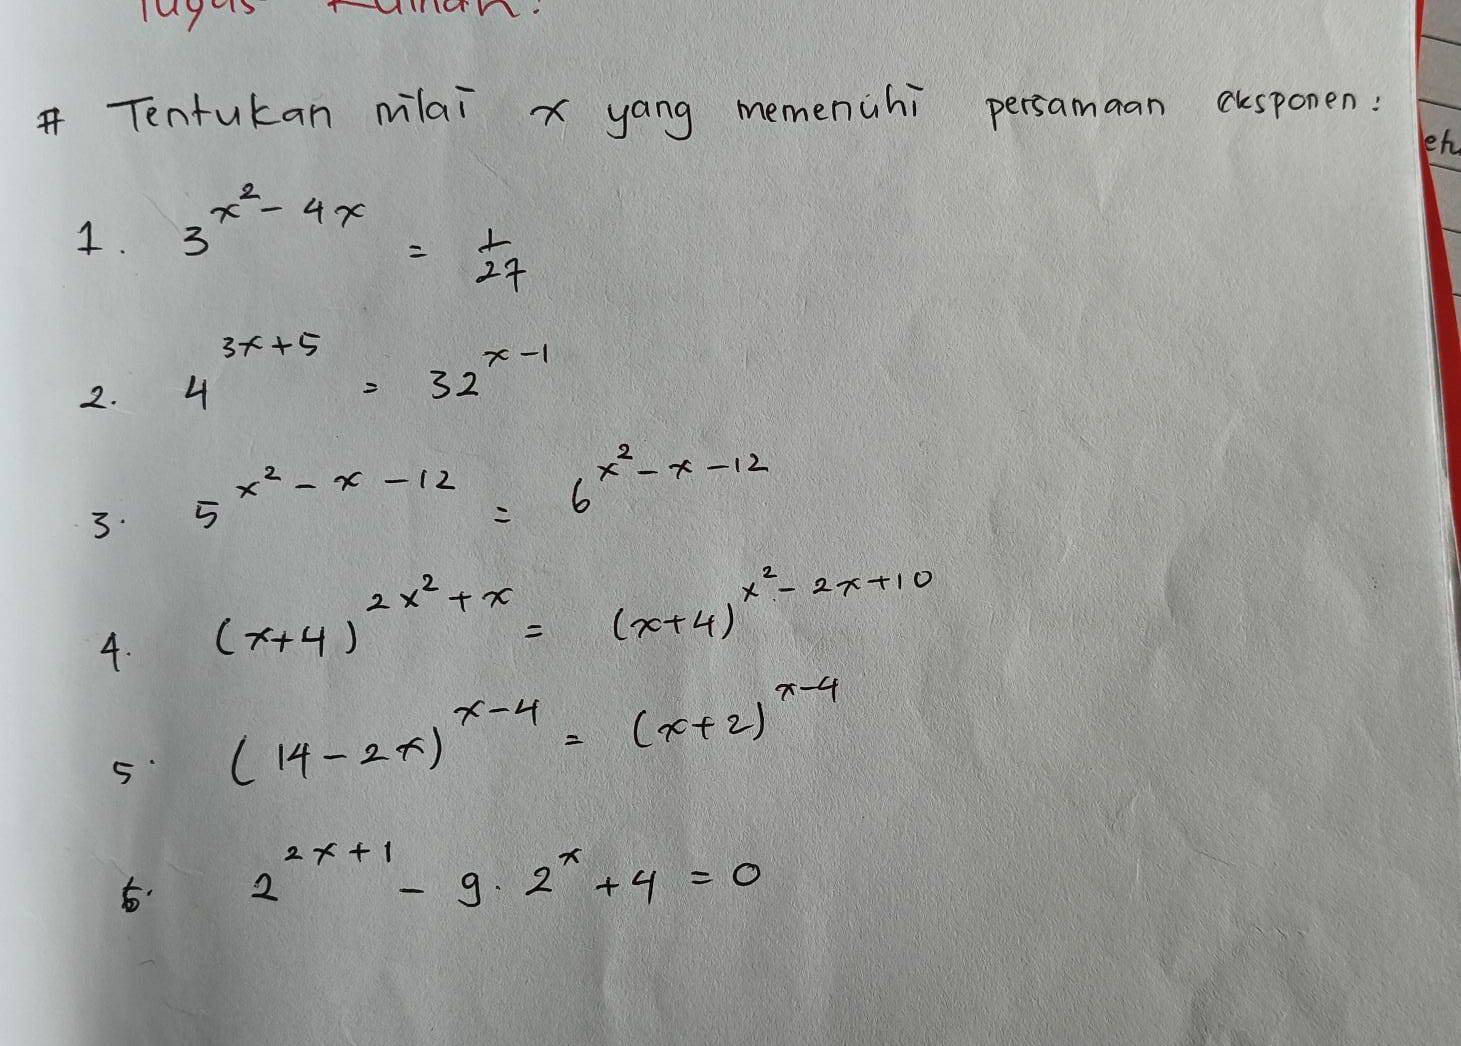 Tugas Rumah:
# Tentukan nilai x yang memenuhi persamaan eksponen:
1. 3^(x² - 4x) = 1/27
2. 4^(3x+5) = 32^(x-1)
3. 5^(x² - x - 12) = 6^(x² - x - 12)
4. (x+4)^(2x² + x) = (x+4)^(x² - 2x + 10)
5. (14 - 2x)^(x-4) = (x+2)^(x-4)
6. 2^(2x+1) - 9 . 2^x + 4 = 0